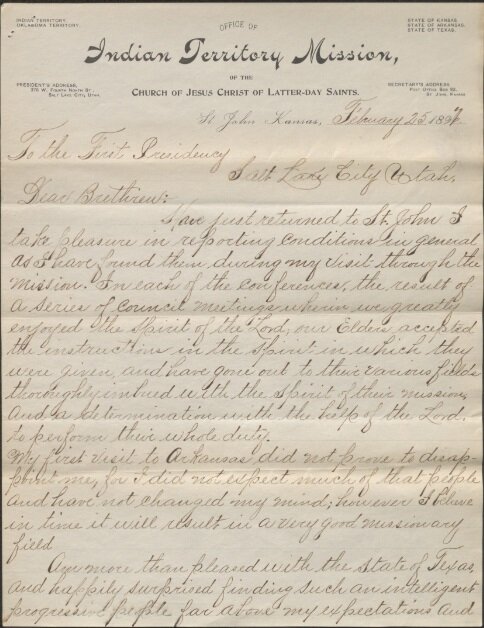 OFFICE OF
INDIAN TERRITORY.
OKLAHOMA TERRITORY.
STATE OF KANSAS.
STATE OF ARKANSAS.
STATE OF TEXAS.
Indian Territory Mission,
OF THE
CHURCH OF JESUS CHRIST OF LATTER-DAY SAINTS.
PRESIDENT'S ADDRESS,
SALT LAKE CITY, UTAH.
SECRETARY'S ADDRESS
POST OFFICE BOX 92,
ST. JOHN, KANSAS
St. John Kansas, February 25 189
To the First Presidency
Salt Lake City Utah.
Dear Brethren:
Have just returned to St. John I
take pleasure in reporting conditions in general
as I have found them, during my visit through the
mission. In each of the conferences, the result of
a series of council meetings wherin we greatly
enjoyed the spirit of the Lord, our Elders accepted
the instructions in the spirit in which they
were given, and have gone out to their various fields
thoroughly imbued with the spirit of their mission,
and a determination with the help of the Lord,
to perform their whole duty.
My first visit to Arkansas did not prove to disap-
point me, for I did not expect much of that people
and have not changed my mind; however I believe
in time it will result in a very good missionary
field
Am more than pleased with the state of Texas,
and happily surprised finding such an intelligent
progressive people far above my expectations and